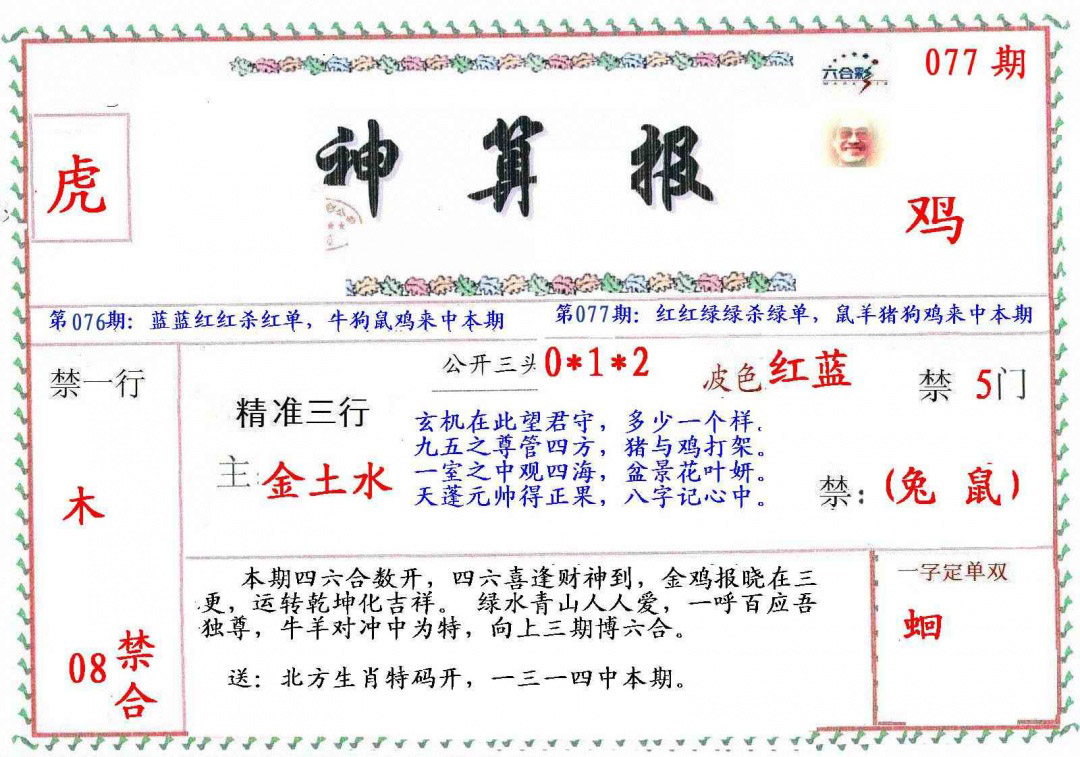 077 期
六合彩
虎
神算报
鸡
第076期：蓝蓝红红杀红单，牛狗鼠鸡来中本期
第077期：红红绿绿杀绿单，鼠羊猪狗鸡来中本期
禁一行
木
08 禁合
公开三头 0*1*2
波色 红蓝
禁 5门
精准三行
主: 金土水
玄机在此望君守，多少一个样。
九五之尊管四方，猪与鸡打架。
一室之中观四海，盆景花叶妍。
天蓬元帅得正果，八字记心中。
禁：(兔 鼠)
本期四六合数开，四六喜逢财神到，金鸡报晓在三
更，运转乾坤化吉祥。 绿水青山人人爱，一呼百应吾
独尊，牛羊对冲中为特，向上三期博六合。
送：北方生肖特码开，一三一四中本期。
一字定单双
蛔